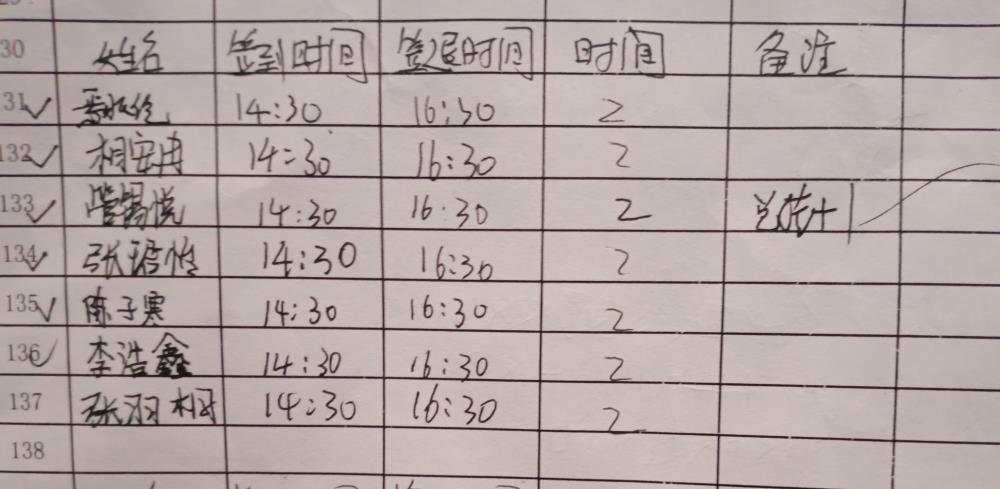 30 姓名 签到时间 签退时间 时间 备注
31 14:30 16:30 2
132 相安冉 14:30 16:30 2
133 管锡悦 14:30 16:30 2
134 张珺怡 14:30 16:30 2
135 陈子寒 14:30 16:30 2
136 李浩鑫 14:30 16:30 2
137 张羽桐 14:30 16:30 2
138